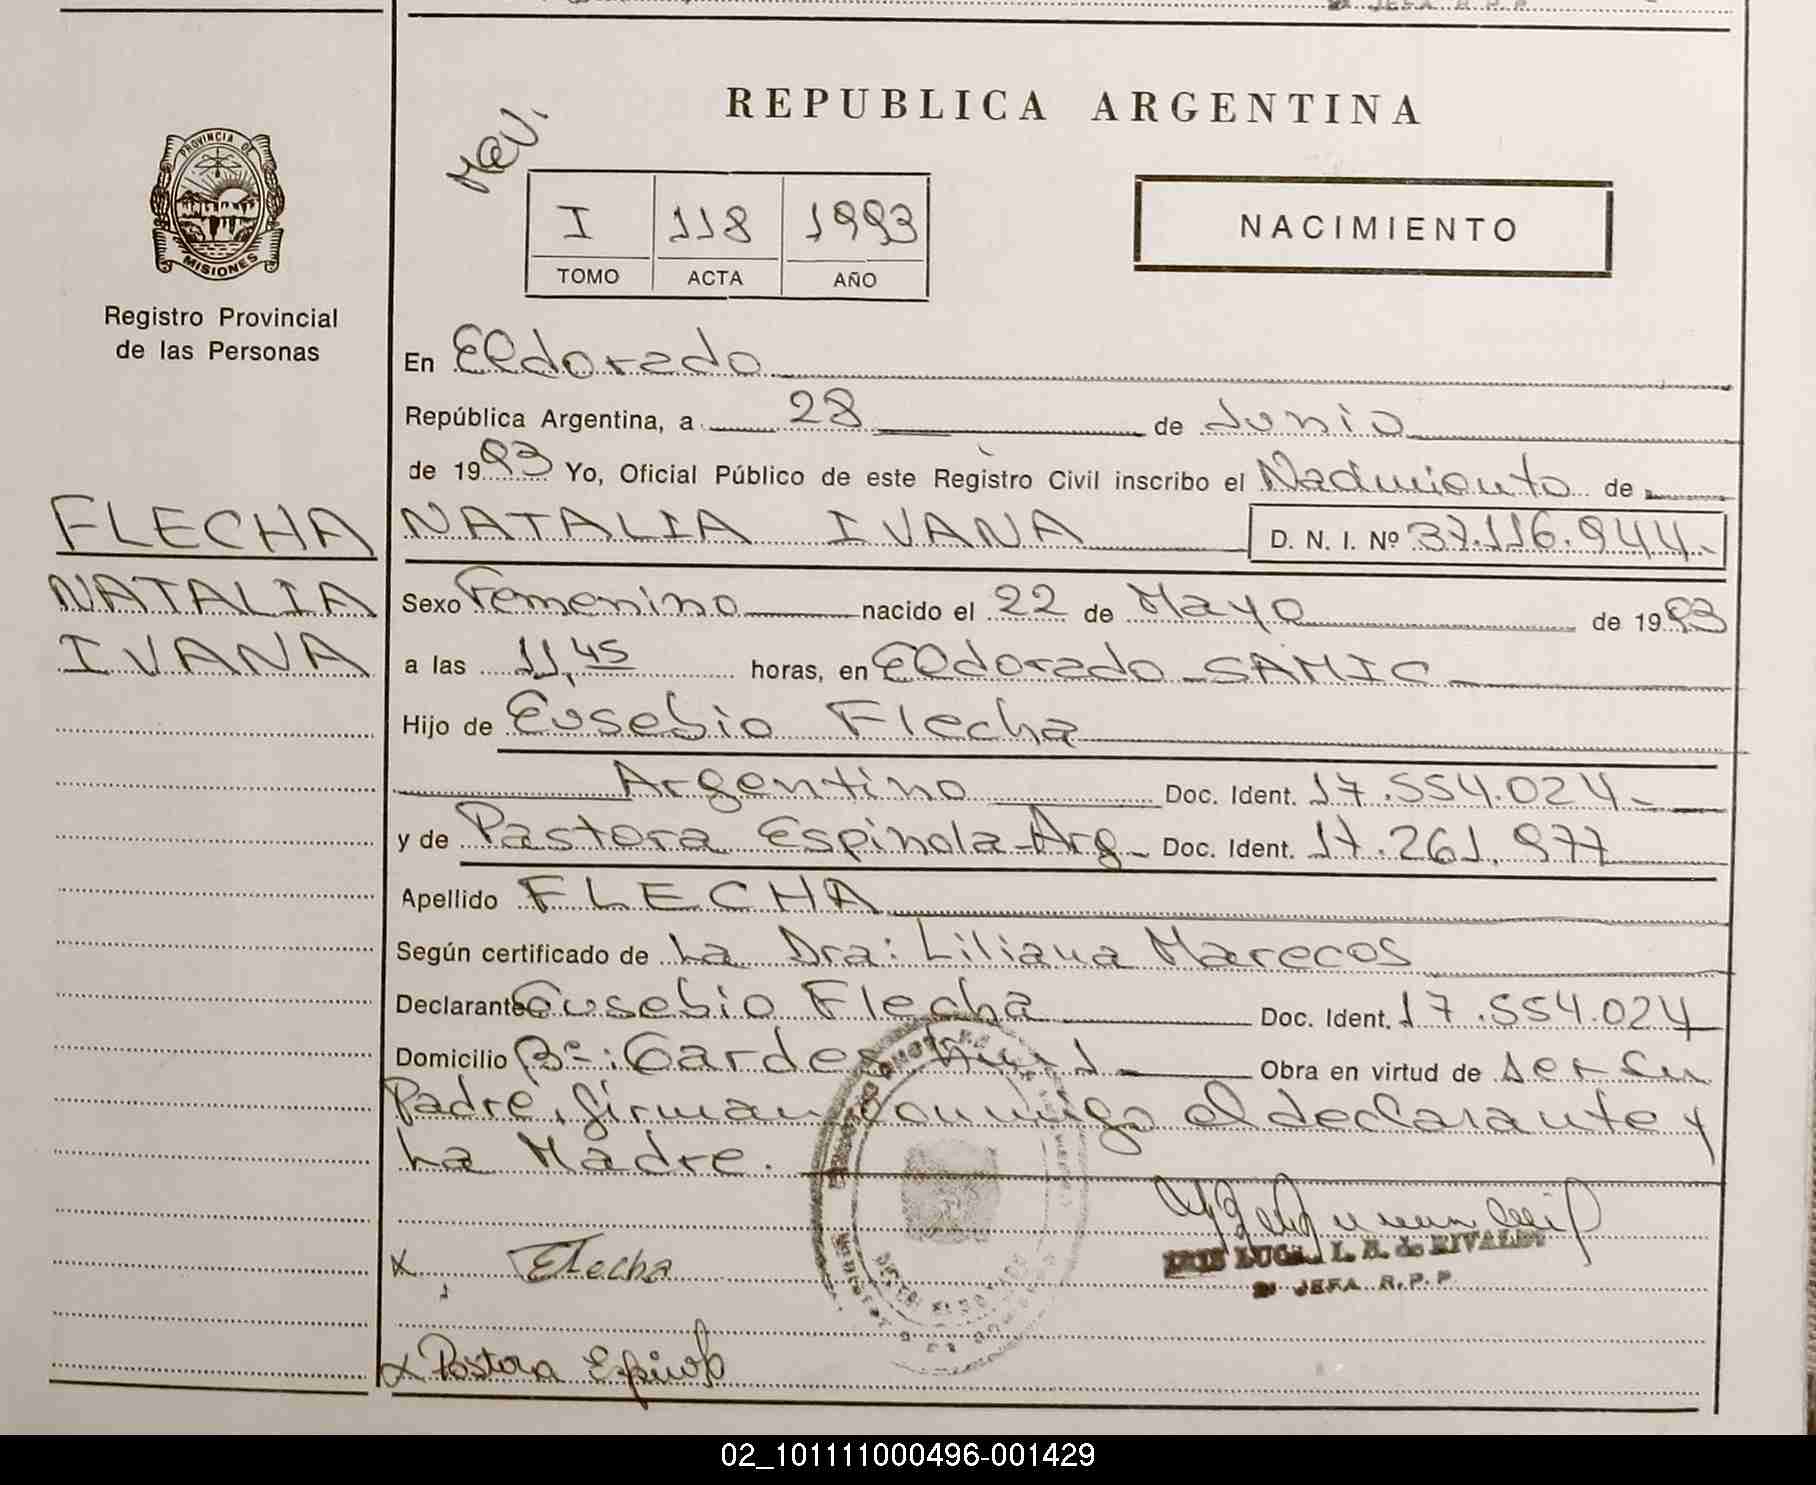 REPUBLICA ARGENTINA
PROVINCIA DE
MISIONES
Registro Provincial
de las Personas
I 118 1993
TOMO ACTA AÑO
NACIMIENTO
En Eldorado
República Argentina, a 28 de Junio
de 1993 Yo, Oficial Público de este Registro Civil inscribo el Nacimiento de
FLECHA
NATALIA
IVANA
NATALIA IVANA D. N. I. Nº 37.116.944.-
Sexo Femenino nacido el 22 de Mayo de 1993
a las 11,45 horas, en Eldorado - SAMIC
Hijo de Eusebio Flecha
Argentino Doc. Ident. 17.554.024.-
y de Pastora Espinola - Arg - Doc. Ident. 17.261.977
Apellido FLECHA
Según certificado de La Dra: Liliana Marecos
Declarante Eusebio Flecha Doc. Ident. 17.554.024
Domicilio Bº: Obra en virtud de ser su
Padre, firman conmigo el declarante y
La Madre.
IRIS I. B. de
2ª JEFA R.P.P
x Flecha
x Pastora Espinola
02_101111000496-001429